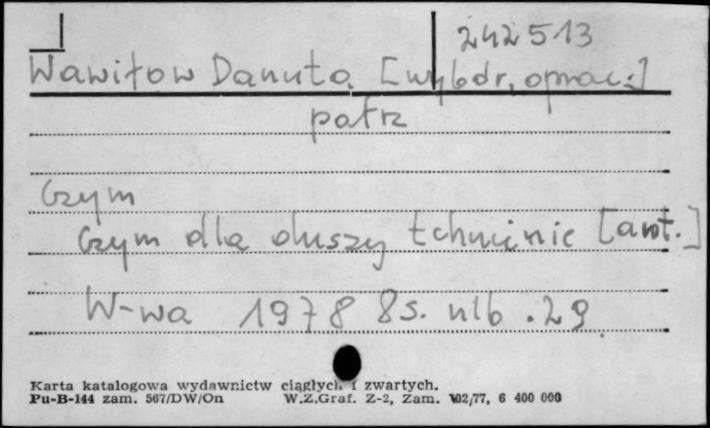 242513
Wawiłow Danuta [wybór, oprac.:]
patrz
Czym
Czym dla duszy tchnienie [ant.]
W-wa 1978 8s. nlb . 29
Karta katalogowa wydawnictw ciągłych i zwartych.
Pu-B-144 zam. 567/DW/On W.Z.Graf. Z-2, Zam. 102/77, 6 400 000